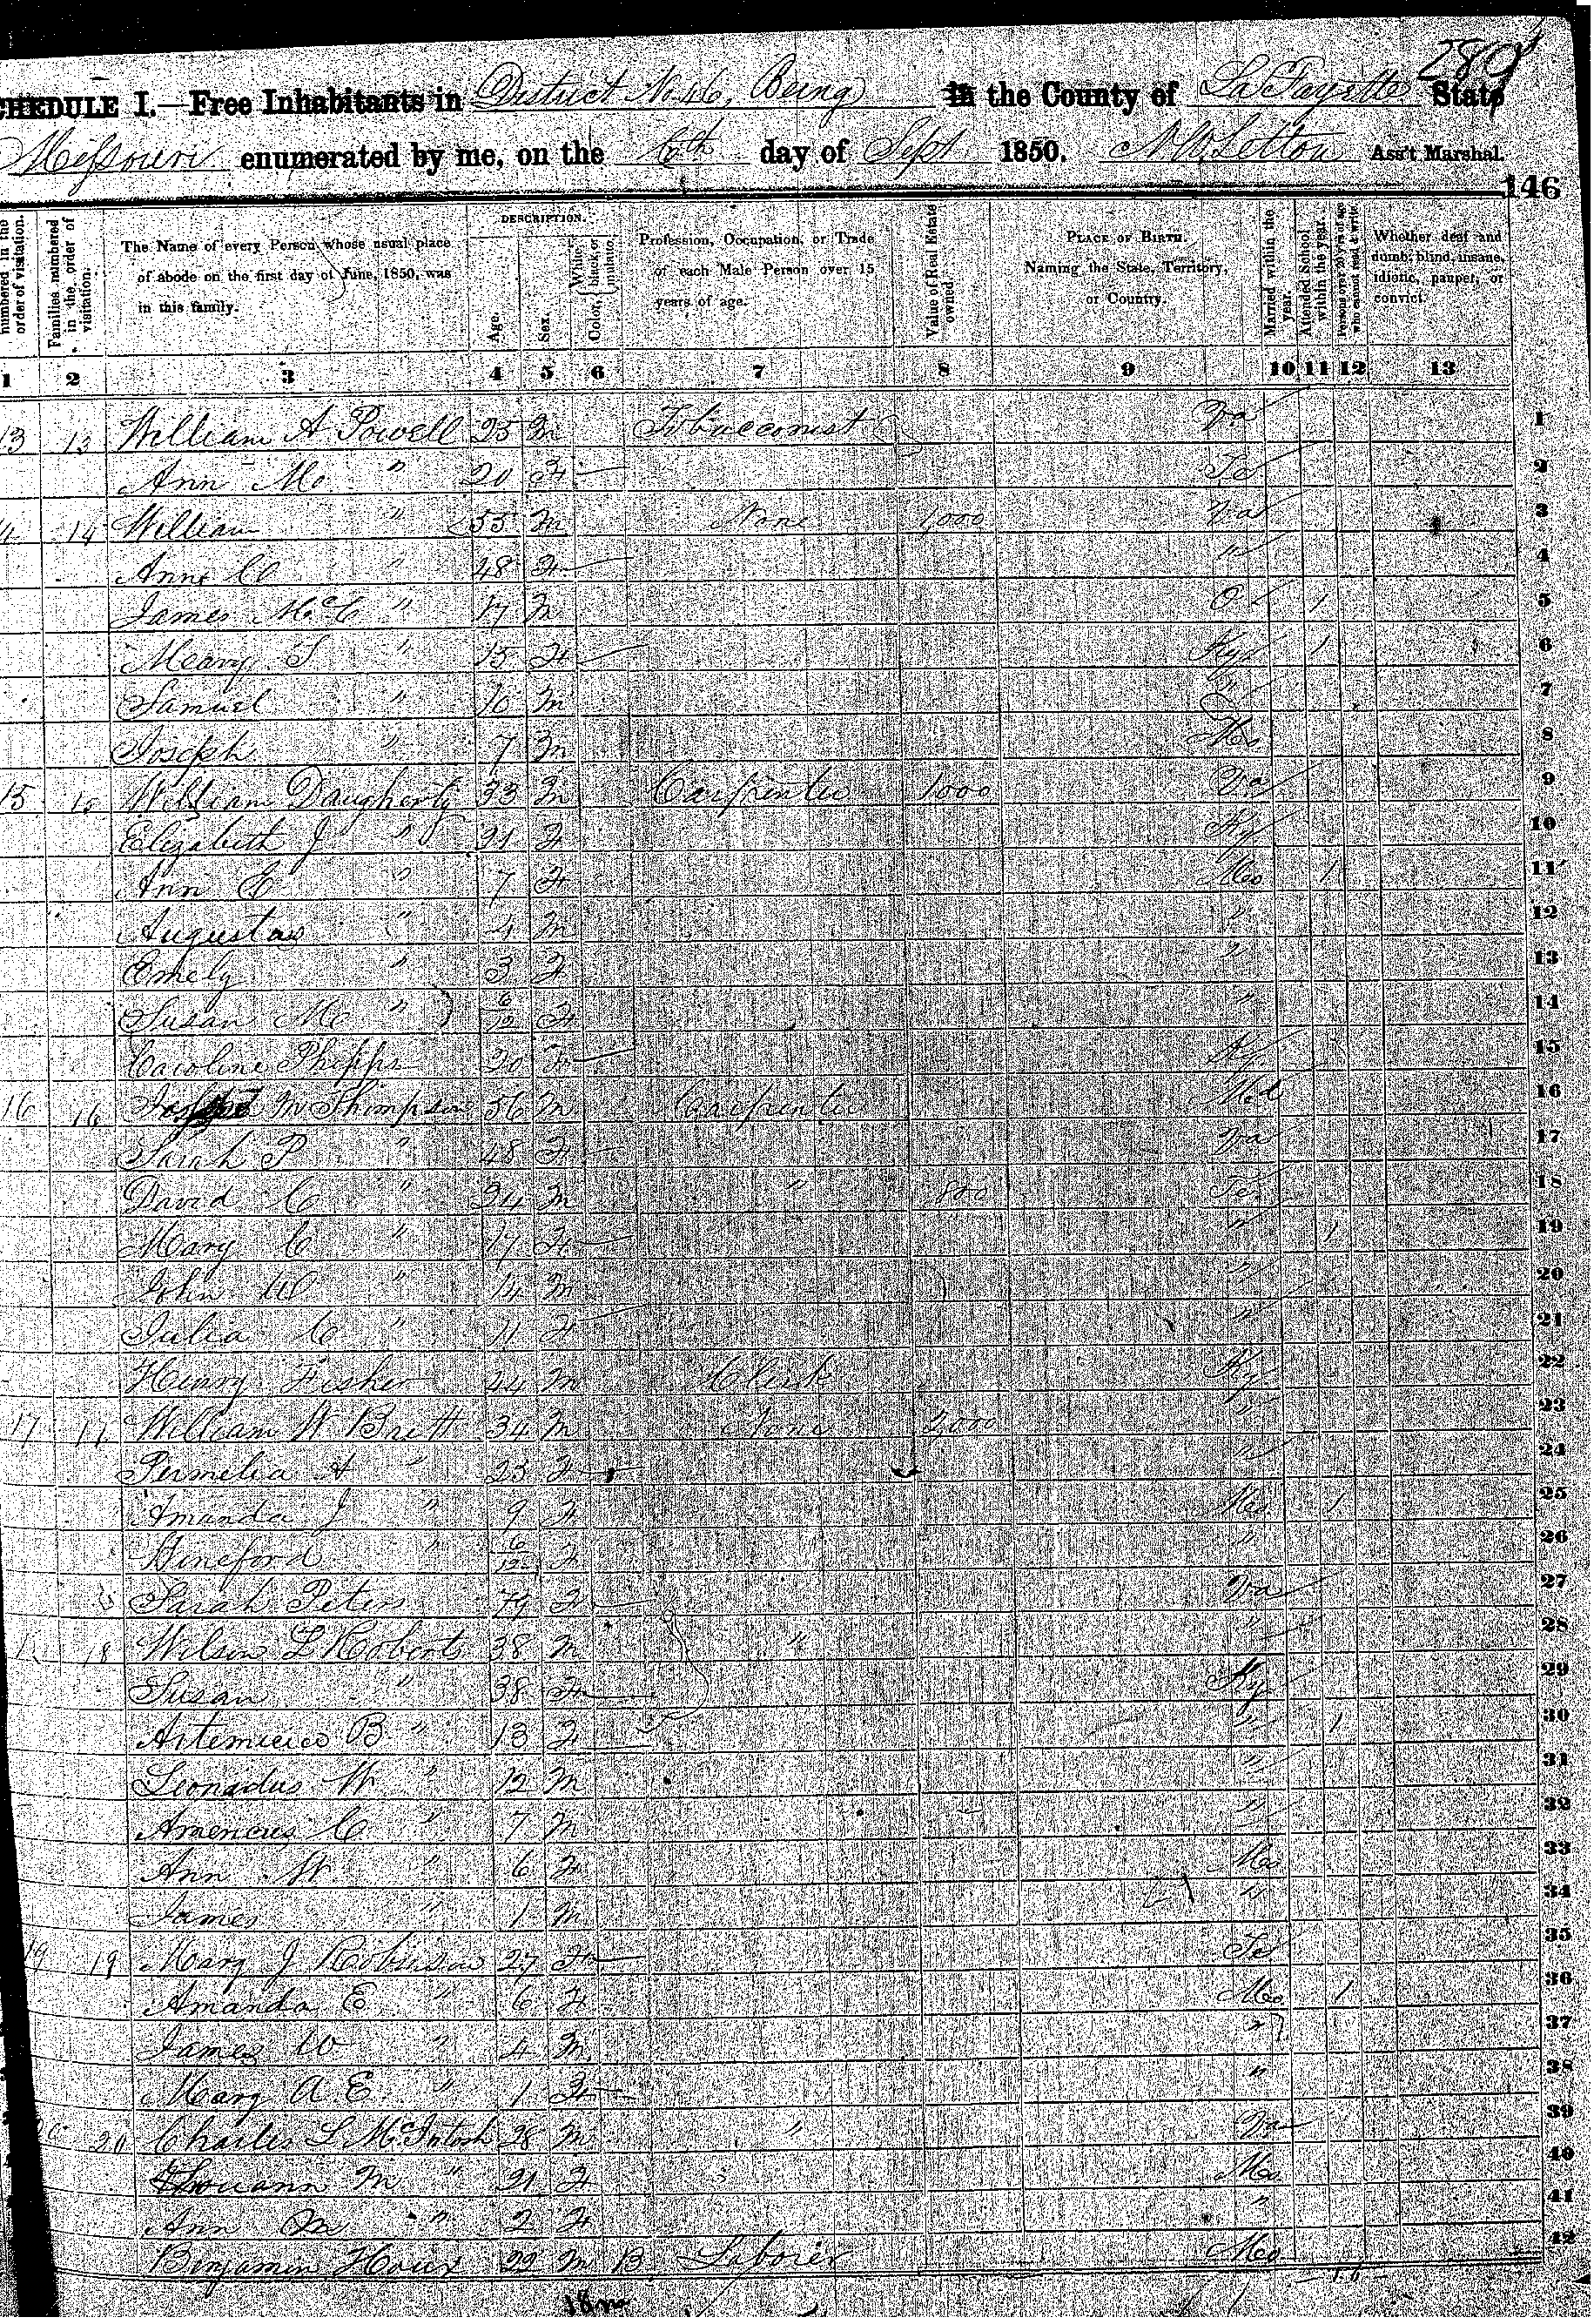 289
SCHEDULE I.—Free Inhabitants in District No 46, Being in the County of La Fayette State
Missouri enumerated by me, on the 6th day of Sept 1850. Ass't Marshal.
146
numbered in the order of visitation.
Families numbered in the order of visitation.
The Name of every Person whose usual place of abode on the first day of June, 1850, was in this family.
DESCRIPTION.
Age.
Sex.
Color, White, black, or mulatto.
Profession, Occupation, or Trade of each Male Person over 15 years of age.
Value of Real Estate owned.
PLACE OF BIRTH. Naming the State, Territory, or Country.
Married within the year.
Attended School within the year.
Persons over 20 y'rs of age who cannot read & write.
Whether deaf and dumb, blind, insane, idiotic, pauper, or convict.
1 2 3 4 5 6 7 8 9 10 11 12 13
13 13 William A Powell 25 M Tobacconist Va 1
Ann M. " 20 F Te 2
14 14 William " 55 M None 1,000 Va 3
Ann " 48 F " 4
James McC " 17 M O 1 5
Mary S " 15 F Ky 1 6
Samuel " 10 M " 7
Joseph " 7 M Mo 8
15 15 William Daugherty 33 M Carpenter 1000 Va 9
Elizabeth J " F Ky 10
Ann E " 7 F Mo 1 11
Augustas " 4 M " 12
Emely " 3 F " 13
Susan M " 6/12 F " 14
Caroline Phipps 20 F Ky 15
16 16 M Shimpson 56 M Carpenter Md 16
Sarah P " 48 F Va 17
David C " 24 M " 800 Te 18
Mary C " 17 F " 1 19
John W " 14 M " 20
Julia C " 11 F " 21
Henry Fisher 24 M Clerk Ky 22
17 17 William W Britt 34 M None 2,000 " 23
Permelia A " 23 F " 24
Amanda J " 9 F Mo 1 25
Wineford " 6/12 F " 26
Sarah Peters 79 F Va 27
18 Wilson L Roberts 38 M " " 28
Susan " 38 F Ky 29
Artemicia B " 13 F " 1 30
Leonadus W " 12 M " 31
Americus C " 7 M " 32
Ann W " 6 F Mo 33
James " 1 M " 34
19 19 Mary J Robinson 27 F Te 35
Amanda E " 6 F Mo 1 36
James W " 4 M " 37
Mary A E " 1 F " 38
20 20 Charles L McIntosh 28 M " Va 39
M " 21 F Mo 40
Ann M " 2 F " 41
Benjamin Houx 22 M B Laborer Mo 42
18 m